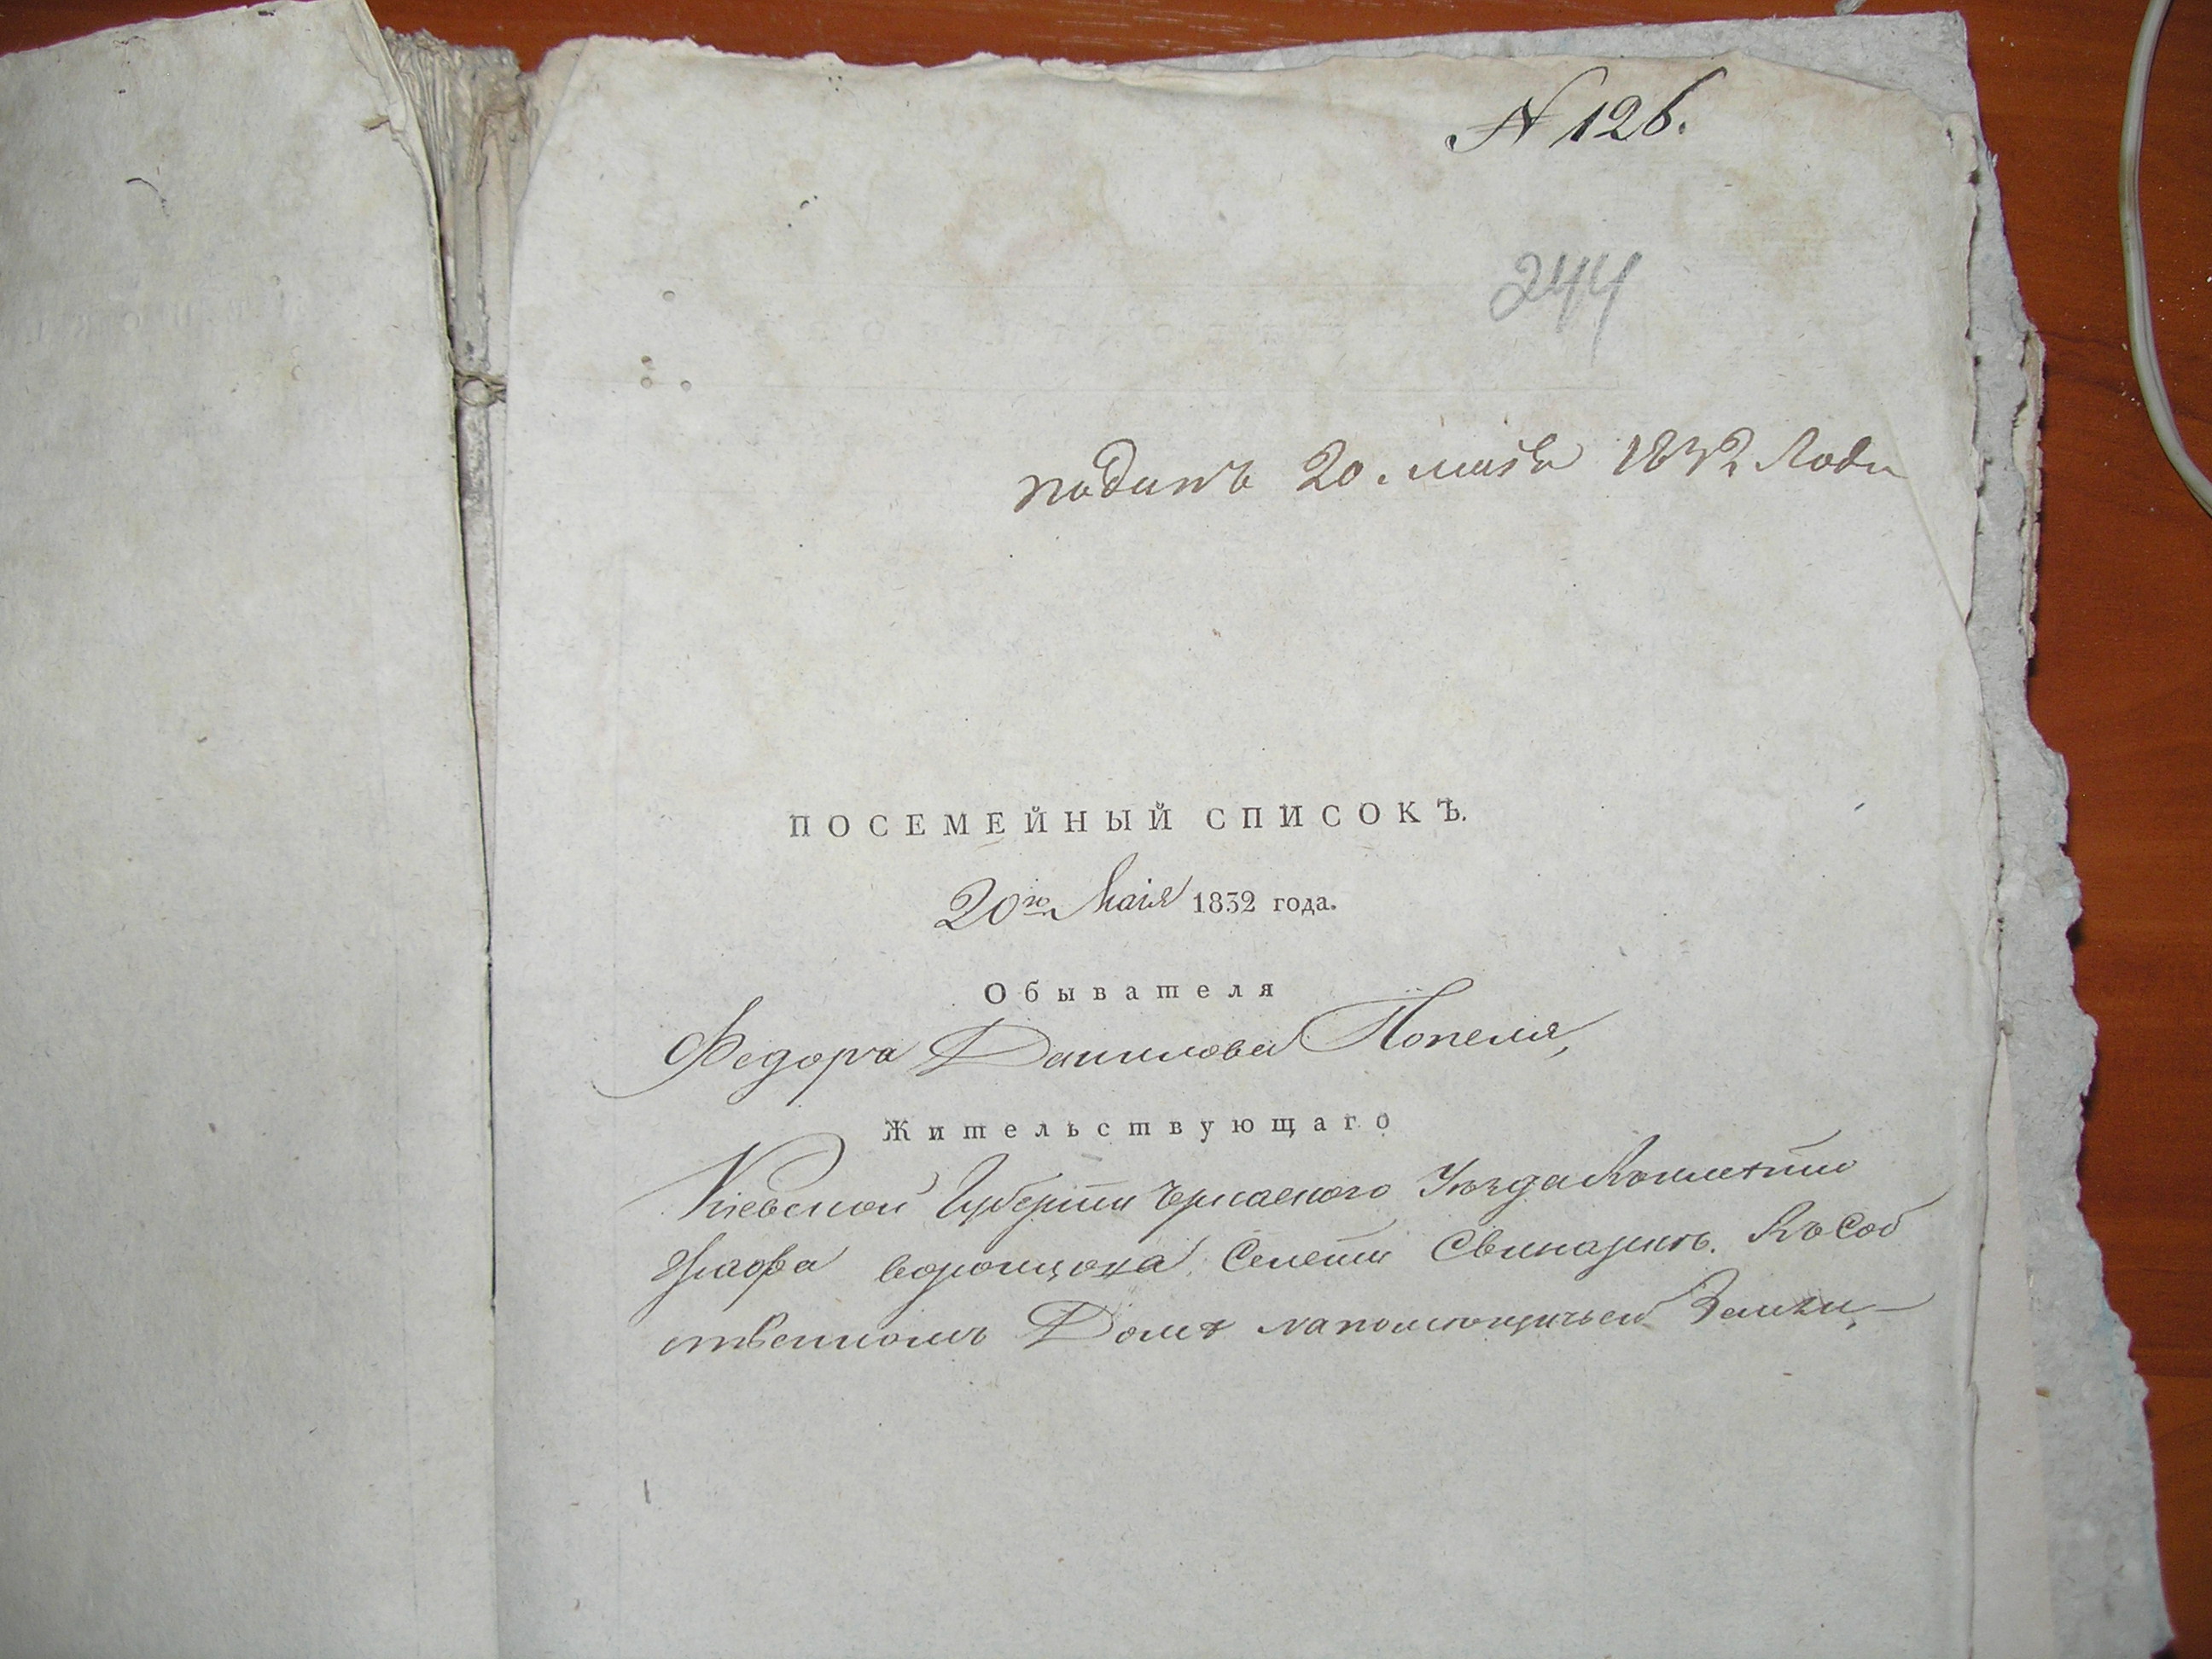 N 126.
244
поданъ 20. мая 1832 года
ПОСЕМЕЙНЫЙ СПИСОКЪ.
20го Маія 1832 года.
Обывателя
Федора Данилова Попеля,
Жительствующаго
Кіевской Губерніи Черкаского Уезда
Графа воронцова, Селенія въ Соб
ственномъ Доме на помещичьей Земли,